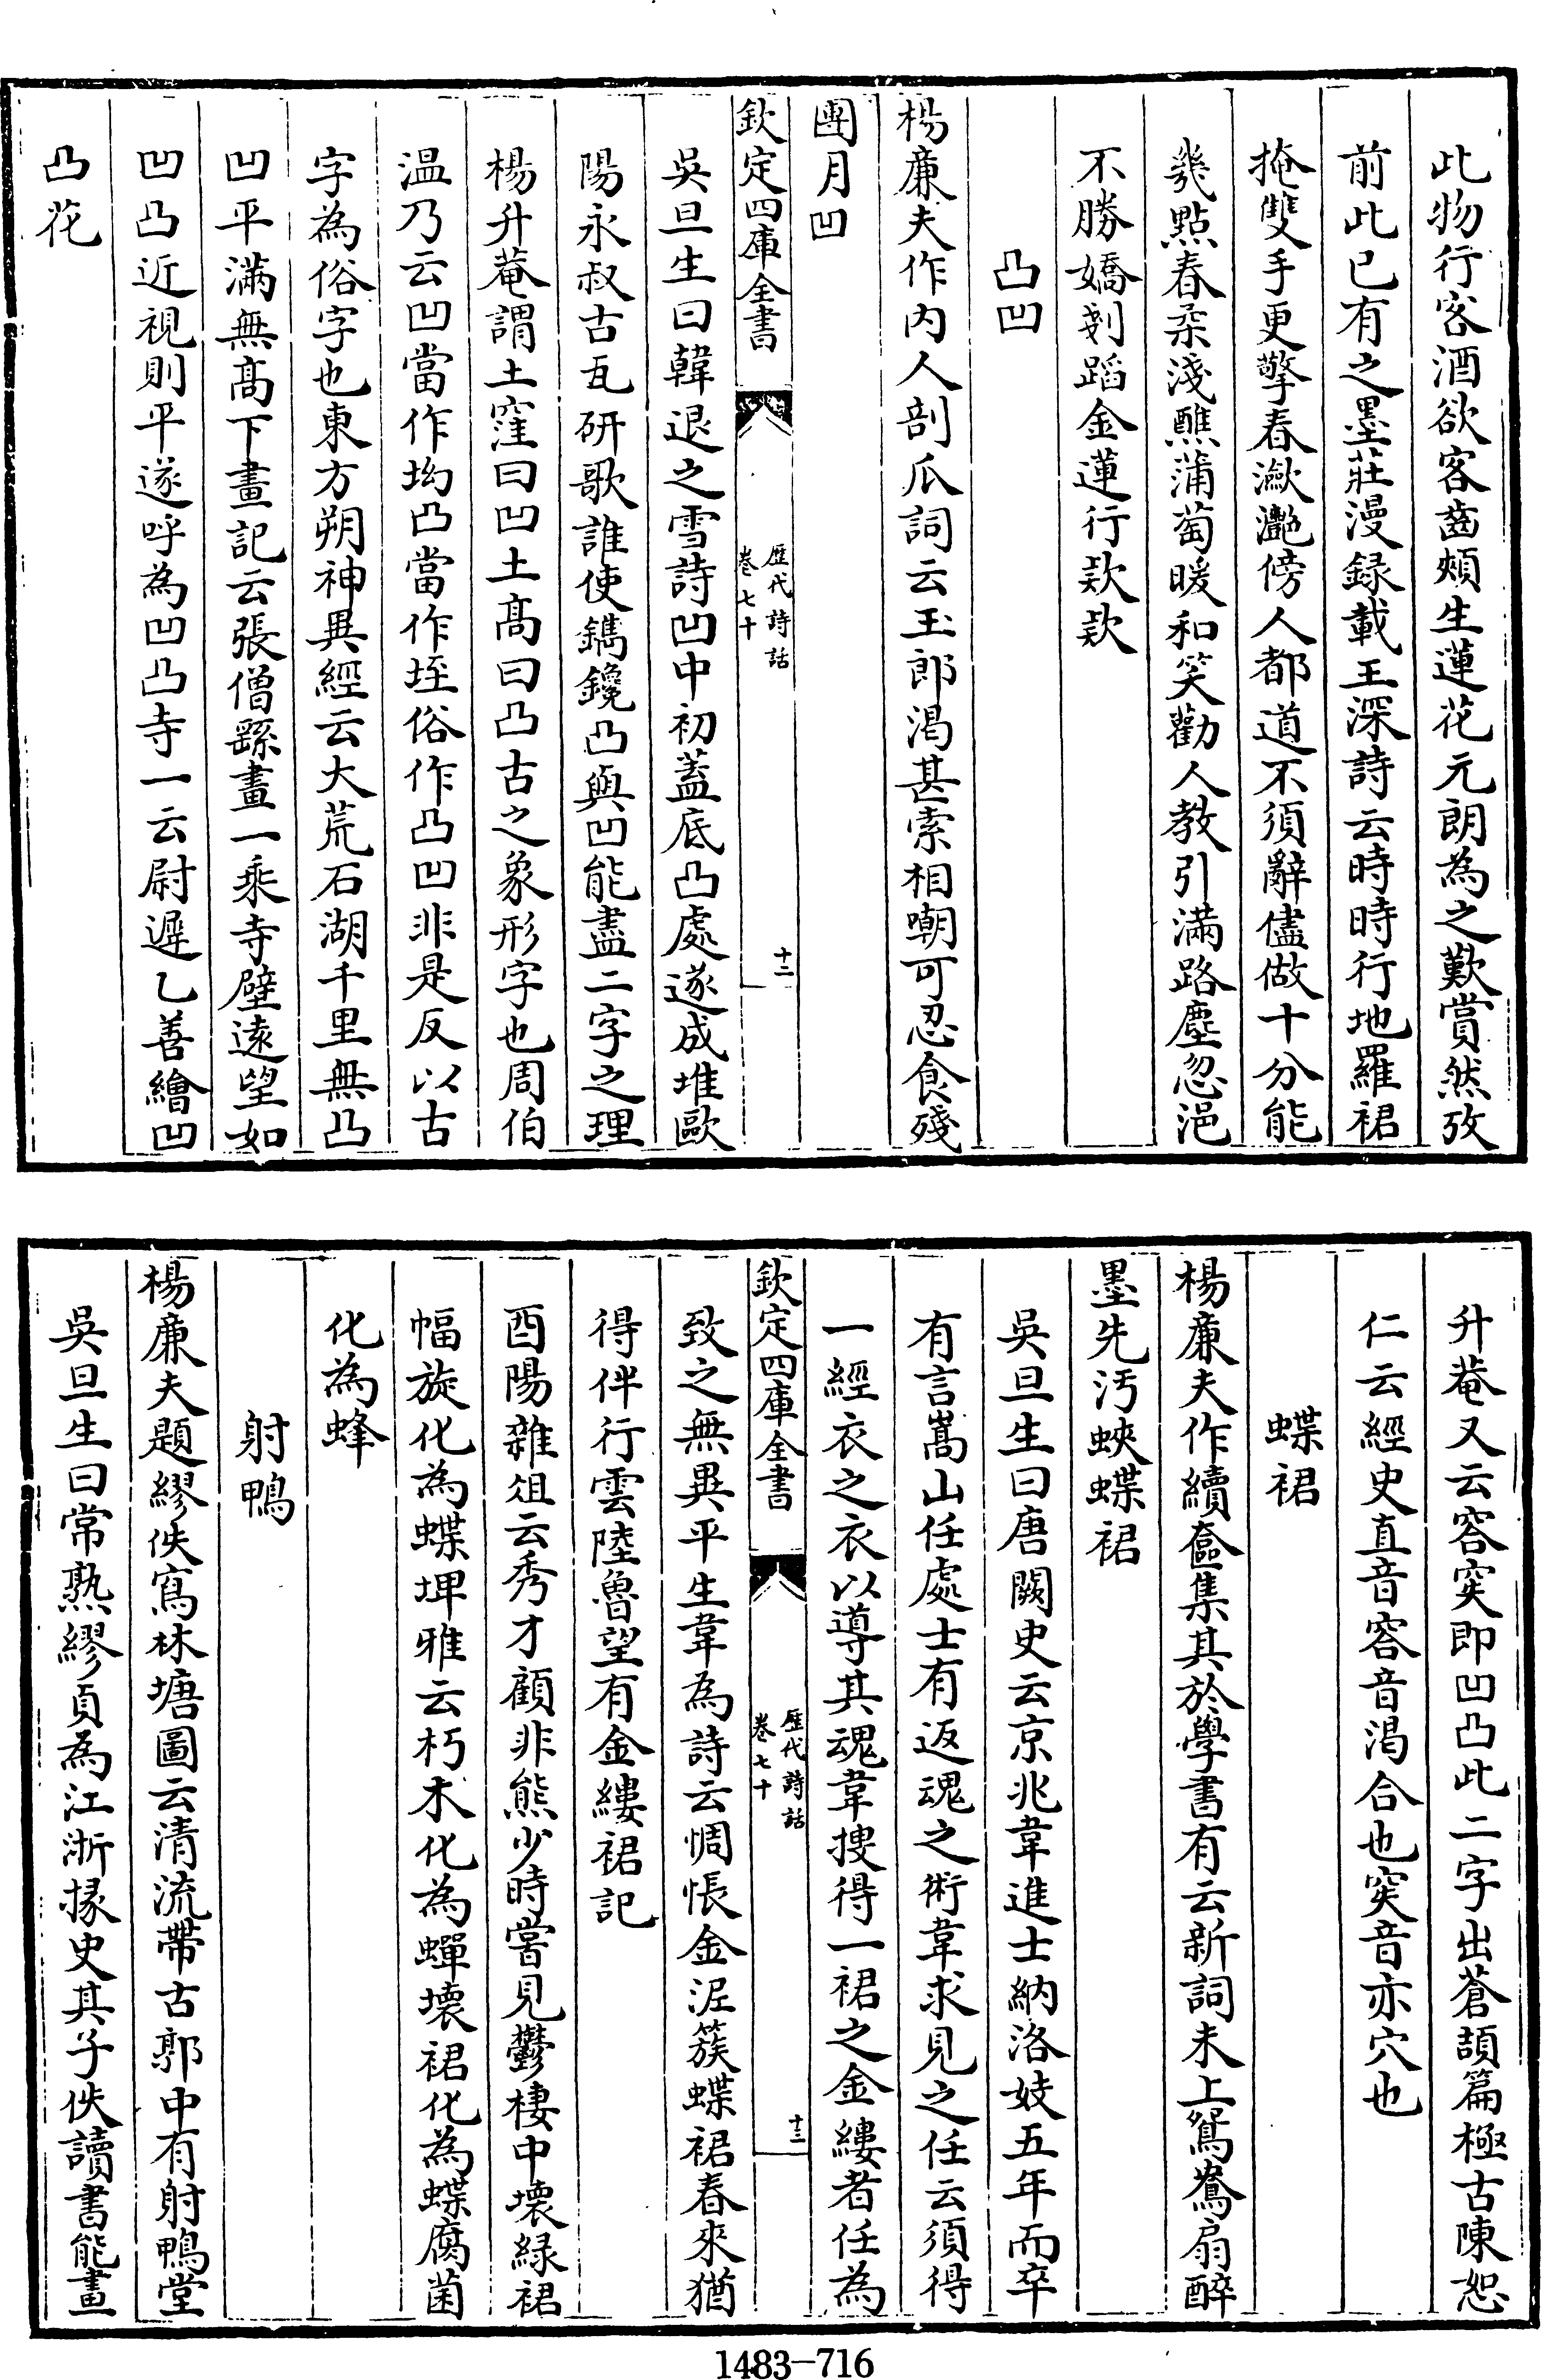 此物行客酒欲客齒頰生蓮花元朗為之歎賞然攷
前此已有之墨莊漫録載王深詩云時時行地羅裙
掩雙手更擎春瀲灧傍人都道不須辭儘做十分能
幾點春柔淺醮蒲萄暖和笑勸人教引滿路塵忽浥
不勝嬌剗蹈金蓮行款款
凸凹
楊廉夫作内人剖瓜詞云玉郎渴甚索相嘲可忍食殘
團月凹
欽定四庫全書
歷代詩話
卷七十
十二
吳旦生曰韓退之雪詩凹中初蓋底凸處遂成堆歐
陽永叔古瓦研歌誰使鐫鑱凸與凹能盡二字之理
楊升菴謂土窪曰凹土髙曰凸古之象形字也周伯
温乃云凹當作坳凸當作垤俗作凸凹非是反以古
字為俗字也東方朔神異經云大荒石湖千里無凸
凹平滿無髙下畫記云張僧繇畫一乘寺壁遠望如
凹凸近視則平遂呼為凹凸寺一云尉遲乙善繪凹
凸花
升菴又云容突即凹凸此二字出蒼頡篇極古陳恕
仁云經史直音容音渴合也突音亦穴也
蝶裙
楊廉夫作續奩集其於學書有云新詞未上鴛鴦扇醉
墨先汚蛺蝶裙
吳旦生曰唐闕史云京兆韋進士納洛妓五年而卒
有言嵩山任處士有返魂之術韋求見之任云須得
一經衣之衣以導其魂韋搜得一裙之金縷者任為
欽定四庫全書
歷代詩話
卷七十
十三
致之無異平生韋為詩云惆悵金泥簇蝶裙春來猶
得伴行雲陸魯望有金縷裙記
酉陽雜俎云秀才顧非熊少時嘗見鬱棲中壞緑裙
幅旋化為蝶埤雅云朽木化為蟬壞裙化為蝶腐菌
化為蜂
射鴨
楊廉夫題繆佚寫林塘圖云清流帶古郭中有射鴨堂
吳旦生曰常熟繆貞為江浙掾史其子佚讀書能畫
1483-716